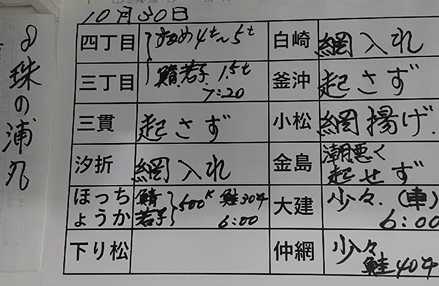 10月30日
珠の浦丸
四丁目 すめ4t〜5t
三丁目 鯖若子 1.5t
7:20
三貫 起さず
汐折 網入れ
ほっち
ょうか
鯖
若子
500K
鮭30本
6:00
下り松
白崎 網入れ
釜沖 起さず
小松 網揚げ
金島 潮悪く
起せず
大建 少々.(車)
6:00
仲網 少々
鮭40本